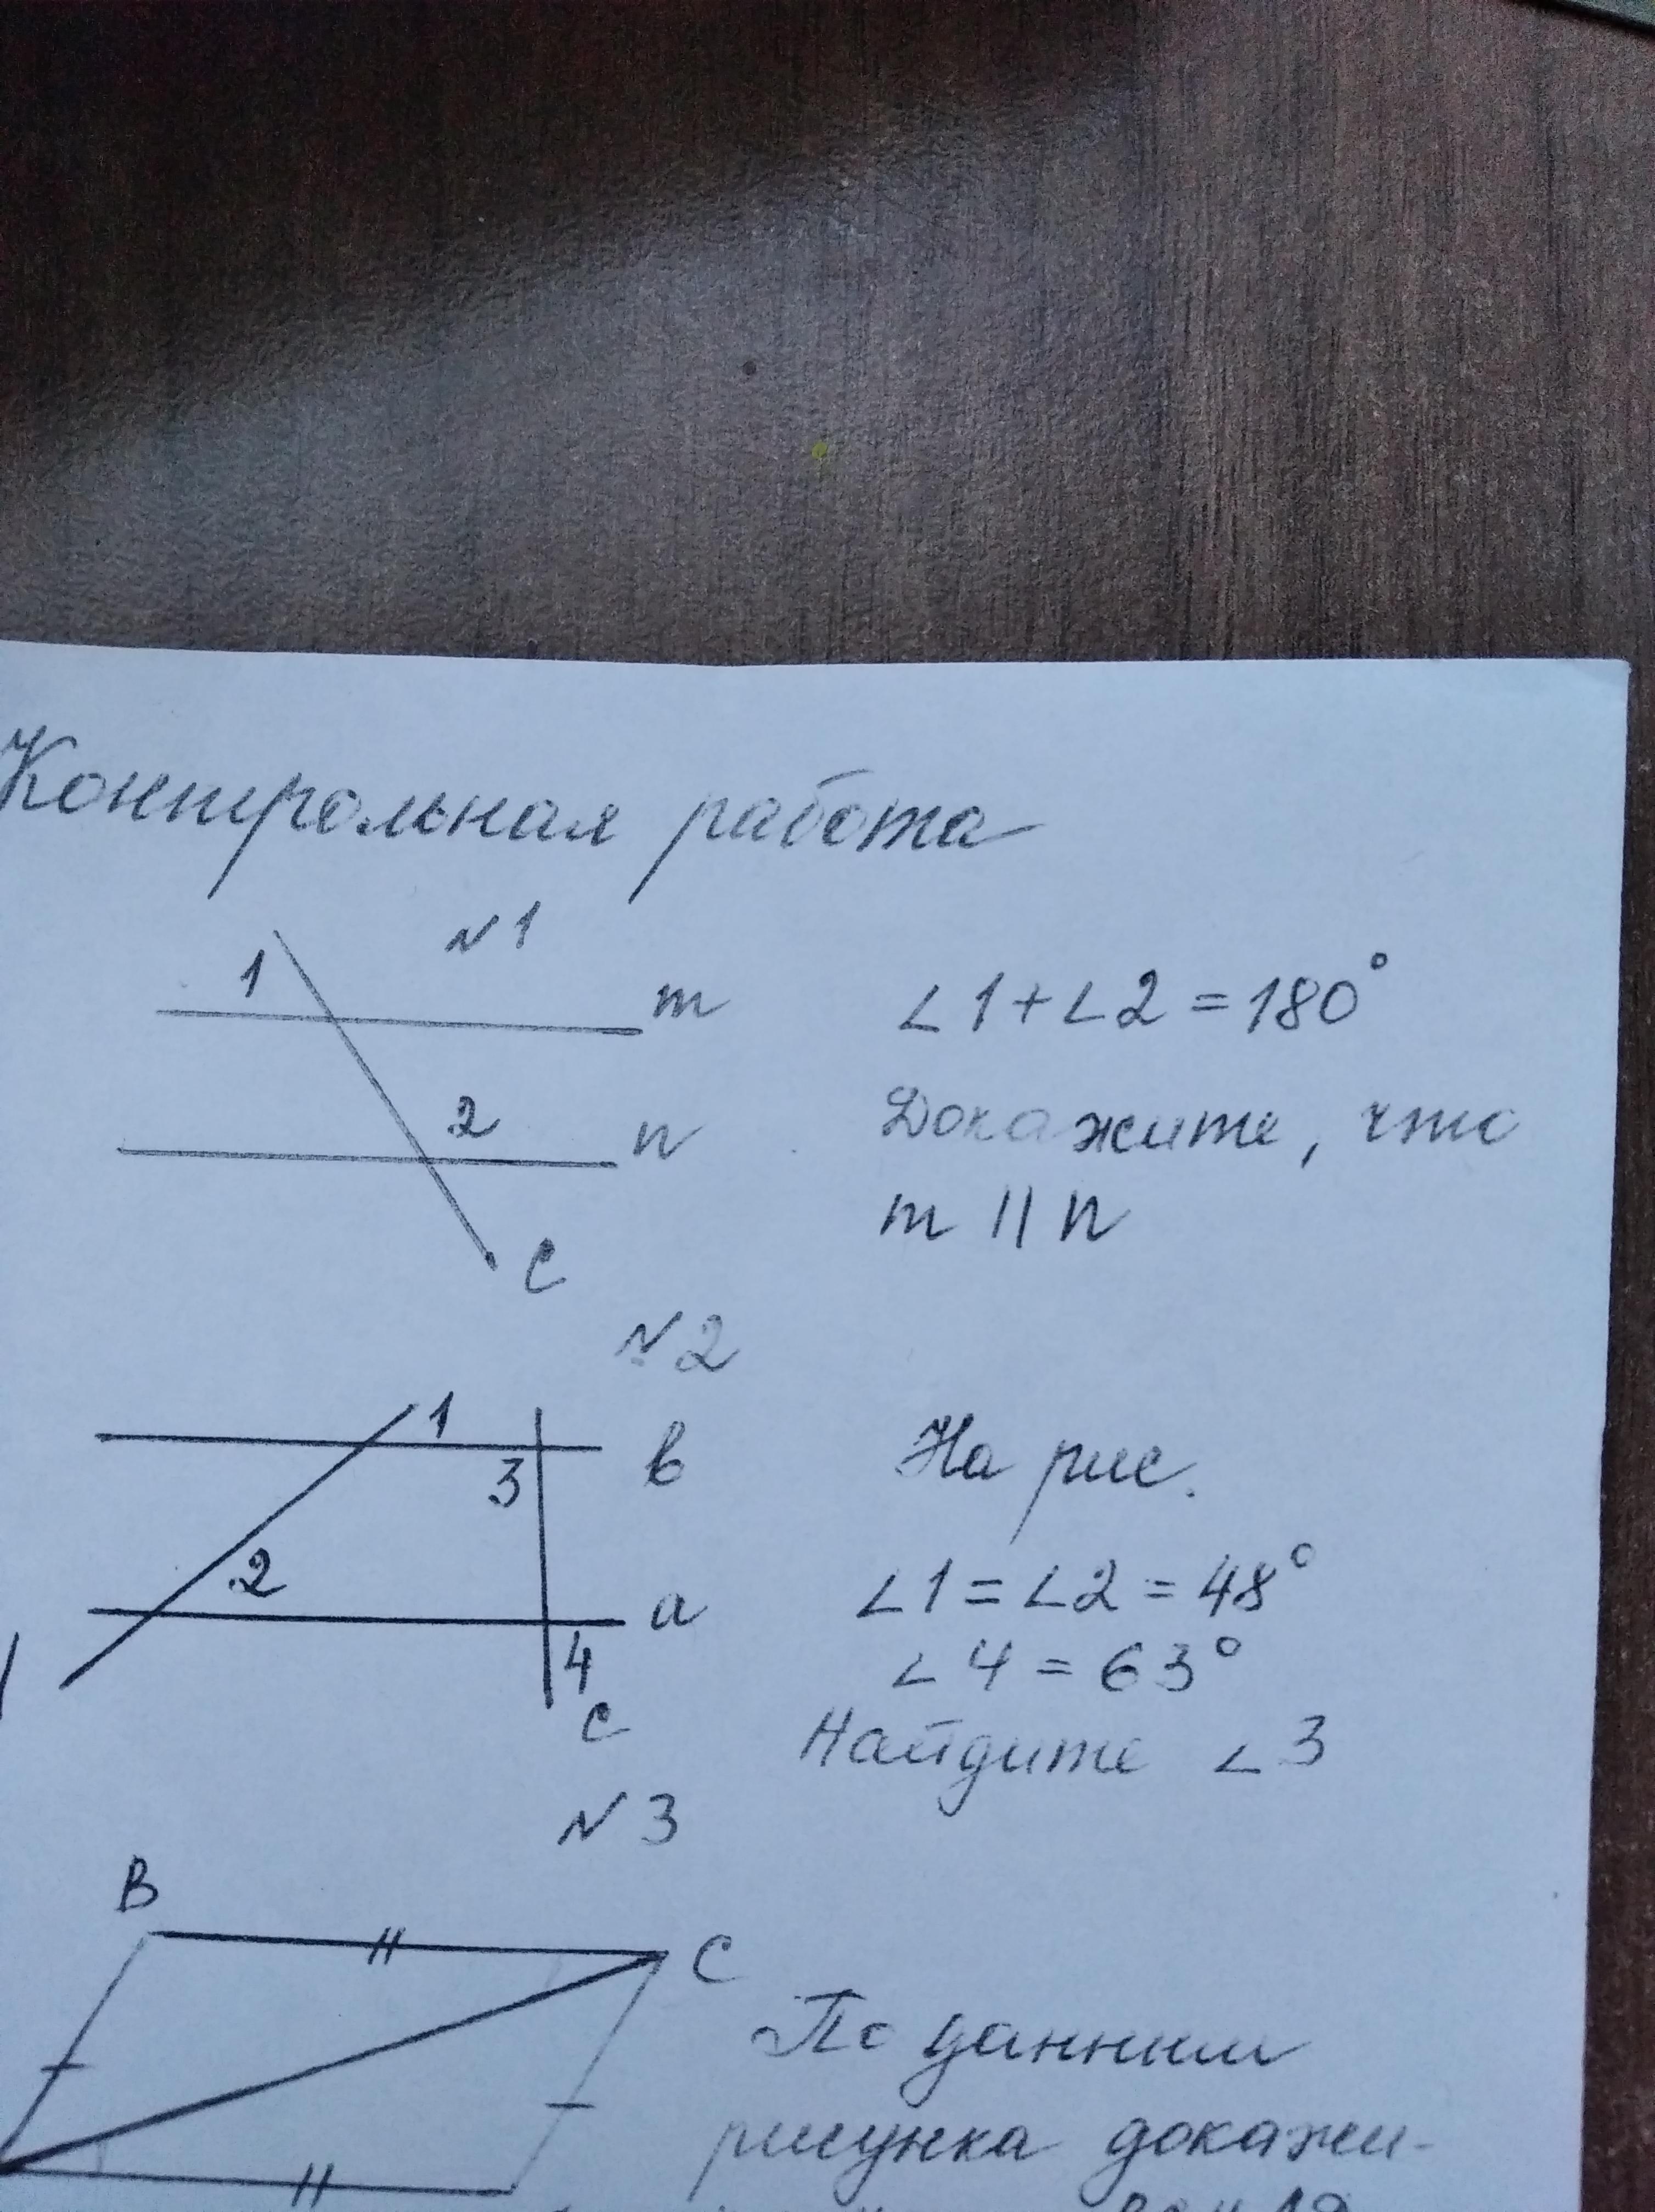 Контрольная работа
№1
1
m
2
n
c
∠1+∠2=180°
Докажите, что
m || n
№2
1
3
в
2
a
4
c
На рис.
∠1=∠2=48°
∠4=63°
Найдите ∠3
№3
B
C
По данным
рисунка докажи-